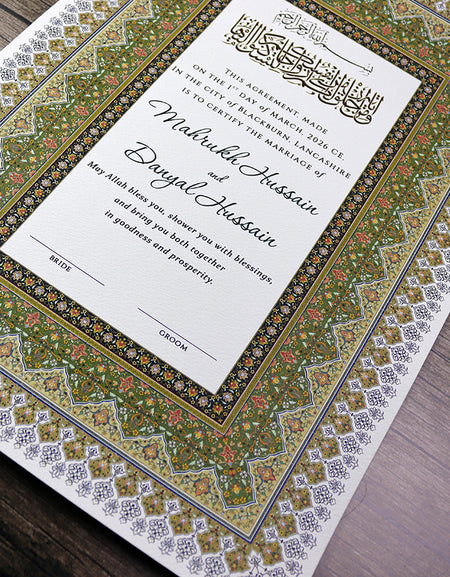 بسم الله الرحمن الرحيم
THIS AGREEMENT, MADE
ON THE 1ST DAY OF MARCH, 2026 CE.
IN THE CITY of BLACKBURN, LANCASHIRE
IS TO CERTIFY THE MARRIAGE of
Mahrukh Hussain
and
Danyal Hussain
May Allah bless you, shower you with blessings,
and bring you both together
in goodness and prosperity.
BRIDE
GROOM